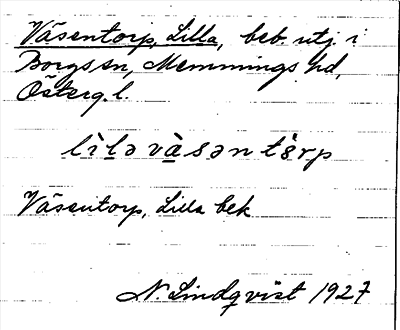 Väsentorp, Lilla, beb. utj. i
Borgs sn, Memmings hd,
Österg. l.
lì̱lə và̱sən tè̱rp
Väsentorp, Lilla bek
N. Lindqvist 1927